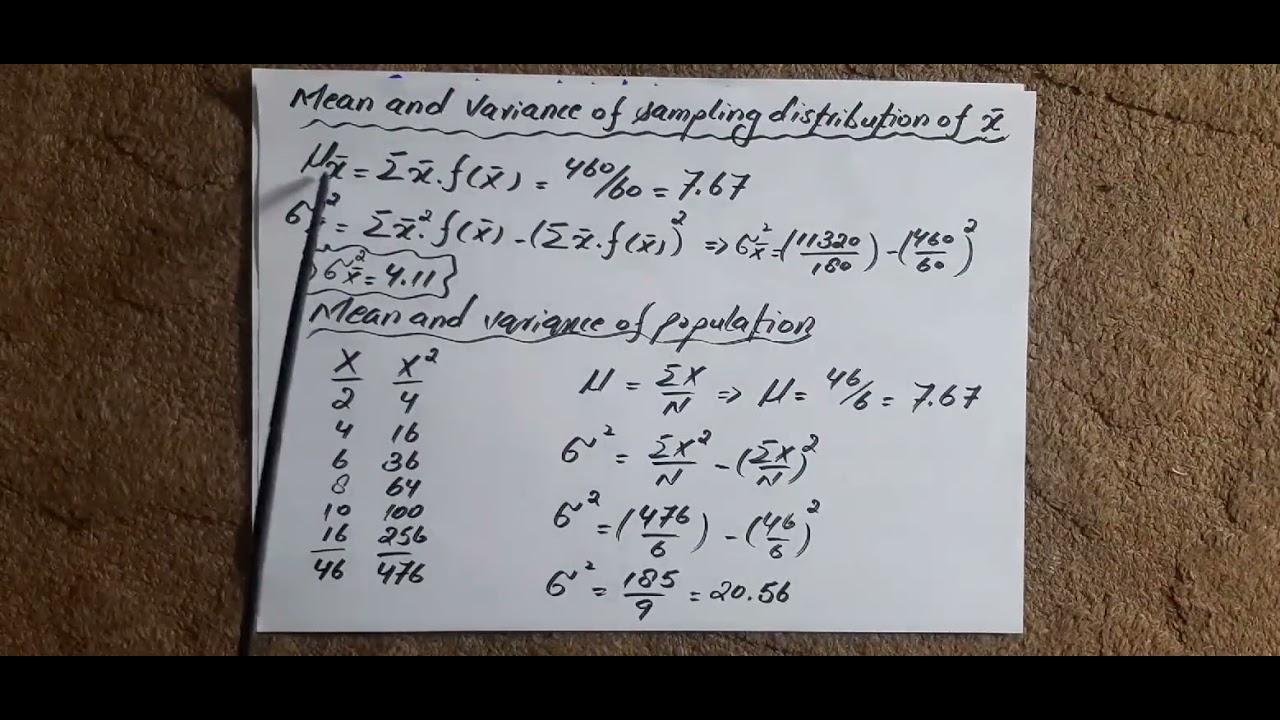 Mean and Variance of sampling distribution of x̄
μx̄ = Σx̄.f(x̄) = 460/60 = 7.67
σx̄² = Σx̄².f(x̄) - (Σx̄.f(x̄))² => σx̄² = (11320/180) - (460/60)²
σx̄² = 4.11
Mean and variance of population
X X²
2 4
4 16
6 36
8 64
10 100
16 256
46 476
μ = ΣX/N => μ = 46/6 = 7.67
σ² = ΣX²/N - (ΣX/N)²
σ² = (476/6) - (46/6)²
σ² = 185/9 = 20.56